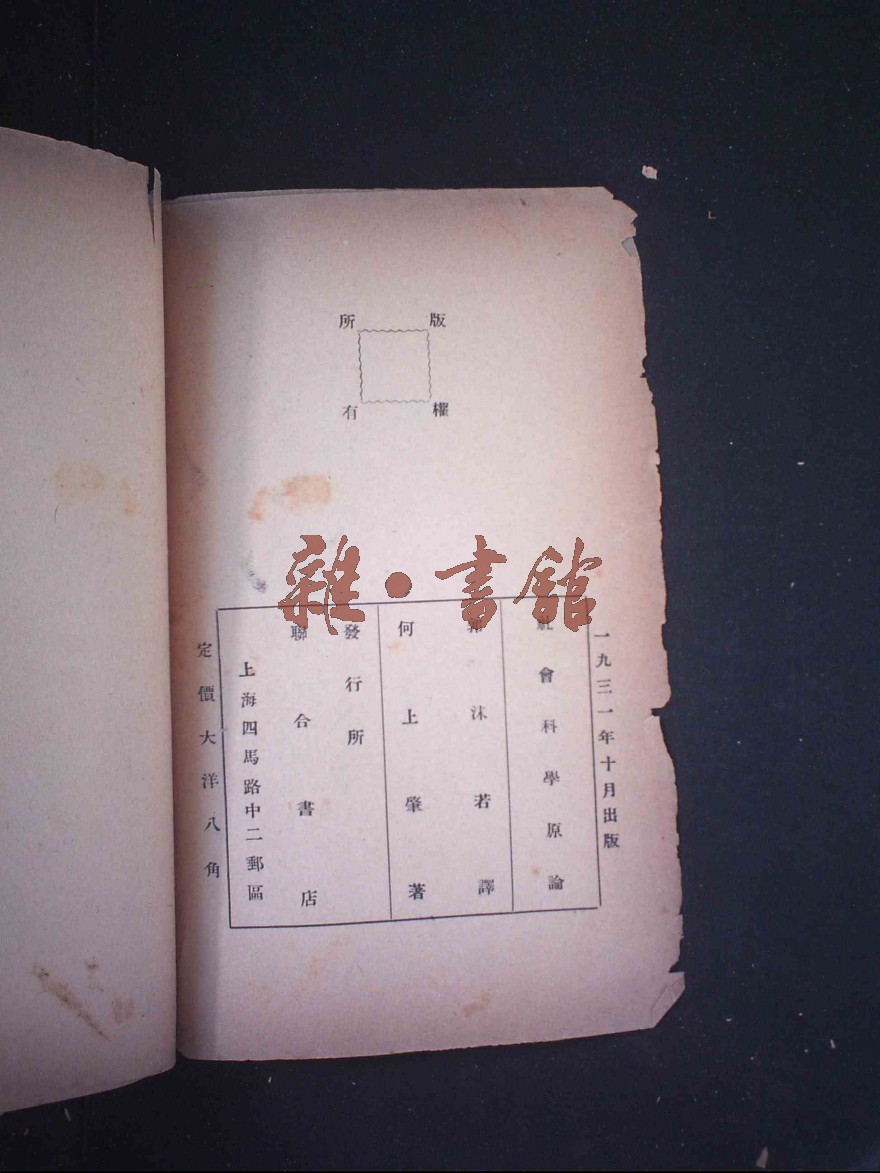 版權所有
雜·書館
一九三一年十月出版
社會科學原論
郭沫若譯
何上肇著
發行所
聯合書店
上海四馬路中二郵區
定價大洋八角